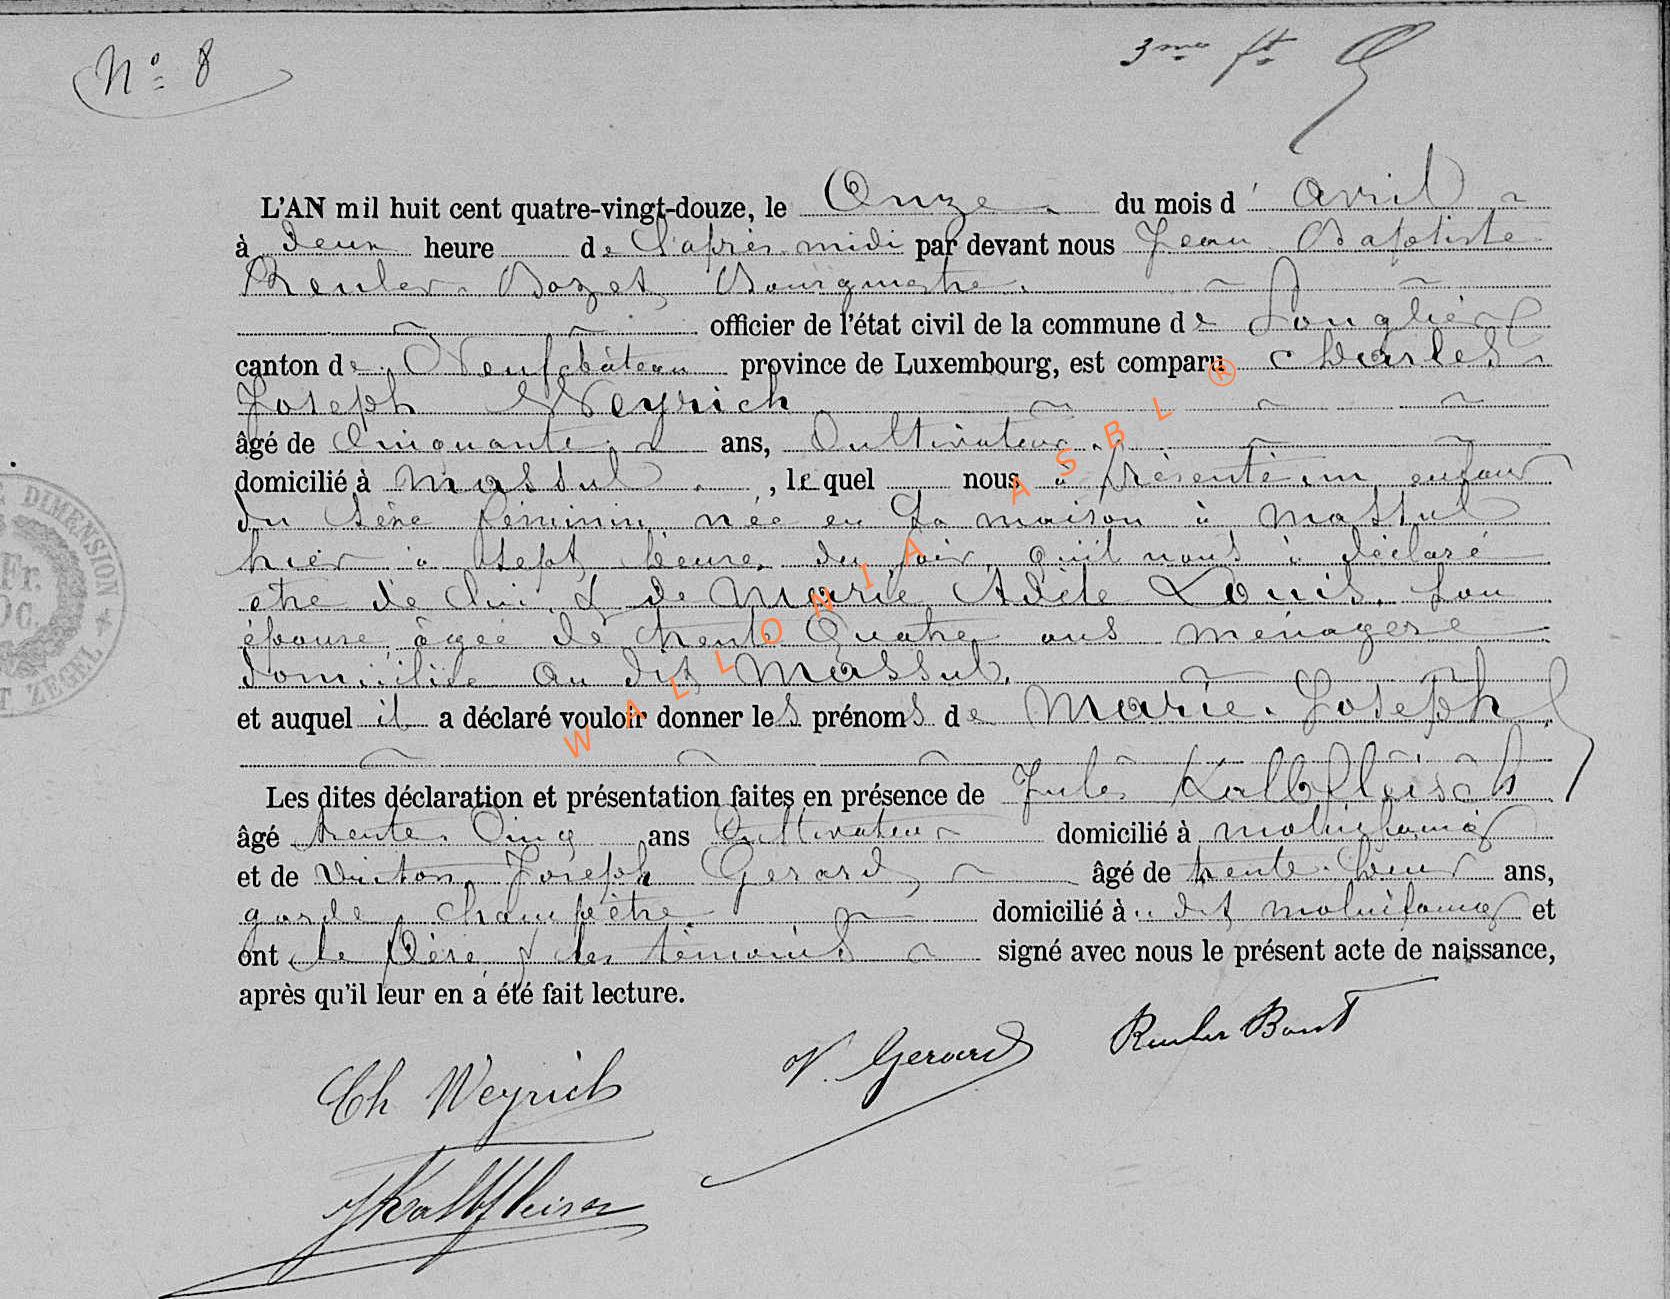 N° 8
3me ft
L'AN mil huit cent quatre-vingt-douze, le Onze du mois d' avril
à deux heure de l'après-midi par devant nous Jean Baptiste
Reuler Bozet, Bourgmestre.
officier de l'état civil de la commune de Longlier
canton de Neufchâteau province de Luxembourg, est comparu Charles
Joseph Weyrich
âgé de Cinquante ans, Cultivateur
domicilié à Massul, lequel nous à présenté un enfant
du sexe féminin née en sa maison à Massul
hier à sept heure du soir qu'il nous à déclaré
etre de lui & de Marie Adèle Louis, son
épouse, âgée de trente Quatre ans ménagère
domiciliée au dit Massul.
et auquel il a déclaré vouloir donner les prénoms de Marie-Joseph
Les dites déclaration et présentation faites en présence de Jules Kalbfleisch
âgé trente Cinq ans Cultivateur domicilié à Molinfaing
et de Joseph Gerard, âgé de trente ans,
garde champêtre domicilié à dit Molinfaing et
ont le Père & les témoins signé avec nous le présent acte de naissance,
après qu'il leur en a été fait lecture.
Ch Weyrich
V. Gerard
Reuler Bozet
JKalbfleisch
DIMENSION
Fr.
ZEGEL
WALLONIA ASBL ®